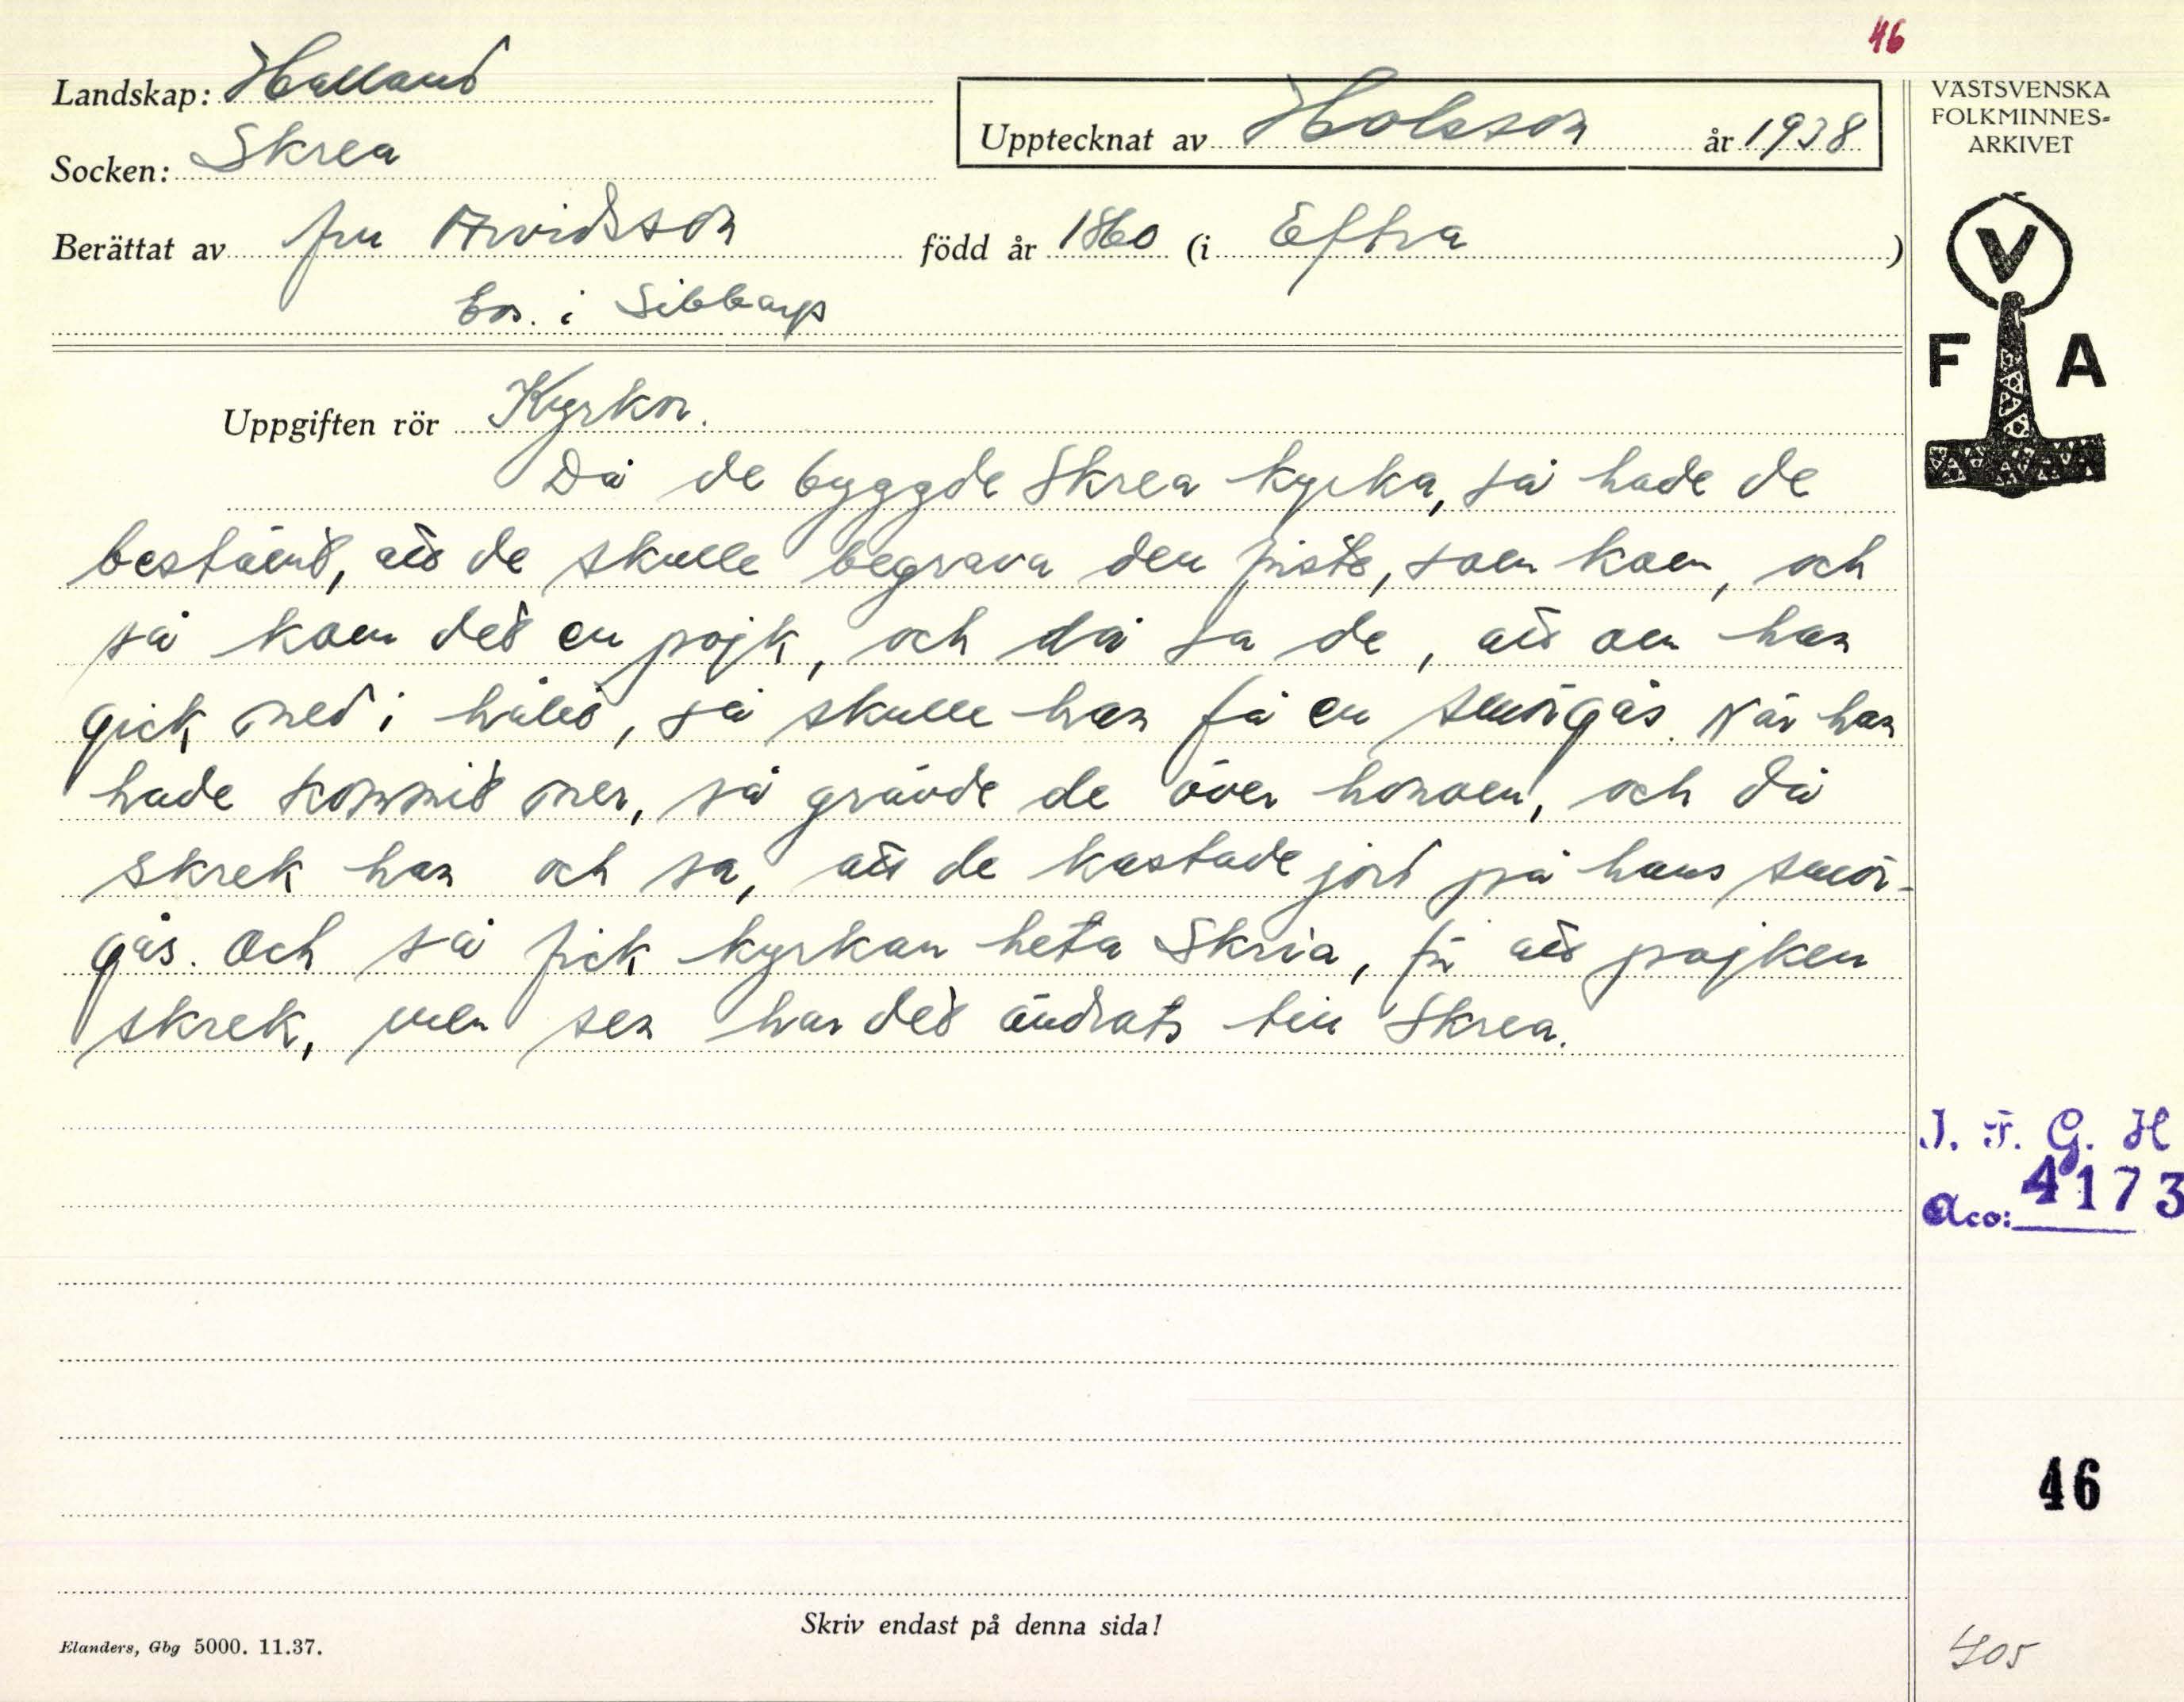 46
Landskap: Halland
Upptecknat av Holsson år 1938
VÄSTSVENSKA
FOLKMINNES-
ARKIVET
Socken: Skrea
Berättat av fru Arvidsson född år 1860 (i Eftra)
bos. i Sibbarp
V
F A
Uppgiften rör Kyrkor.
Då de byggde Skrea kyrka, så hade de
bestämt, att de skulle begrava den först, som kom, och
så kom det en pojk, och då sa de, att om han
gick ned i hålet, så skulle han få en smörgås. När han
hade kommit ner, så grävde de över honom, och då
skrek han och sa, att de kastade jord på hans smör-
gås. Och så fick kyrkan heta Skria, för att pojken
skrek, men sen har det ändrats till Skrea.
J. F. G. H
Acc: 4173
46
Skriv endast på denna sida!
Elanders, Gbg 5000. 11.37.